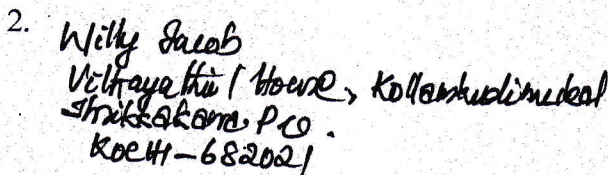 2. Willy Jacob
House, Kollamkudimukal
Thrikkakara P.O.
KOCHI-682021